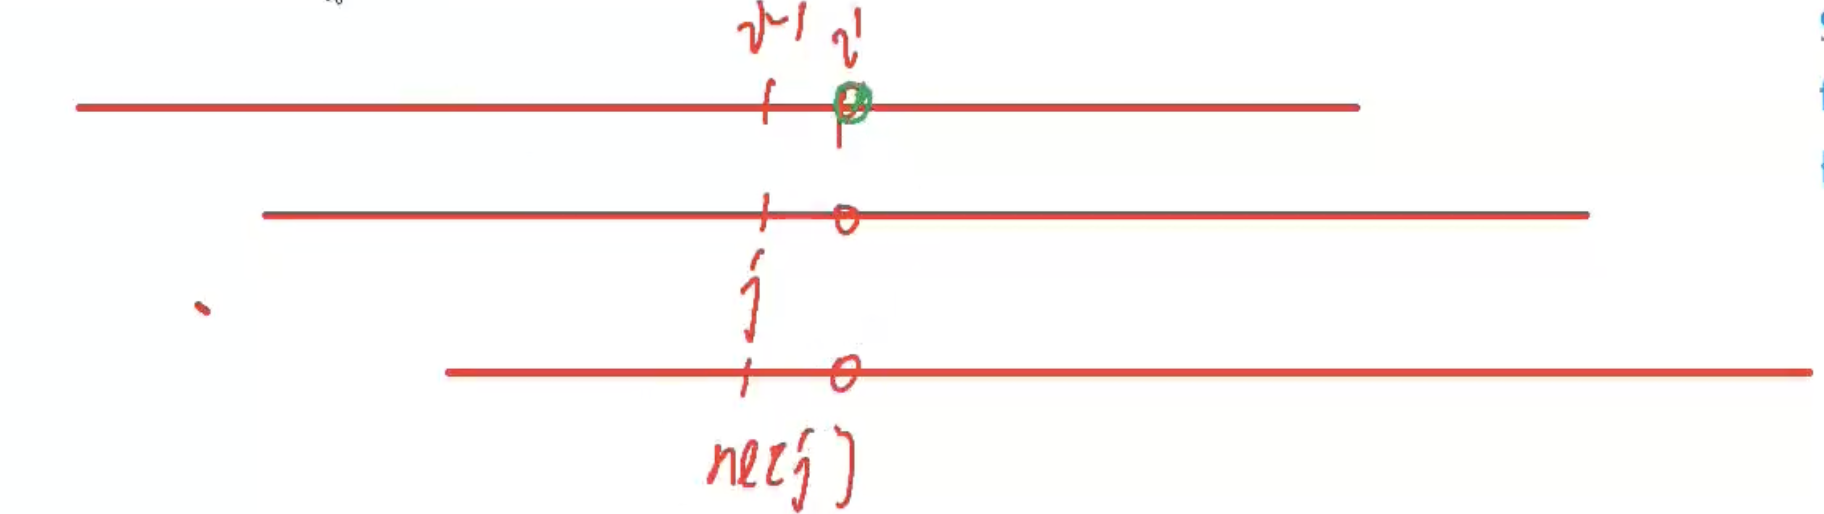 i-1 i
j
ne[j]